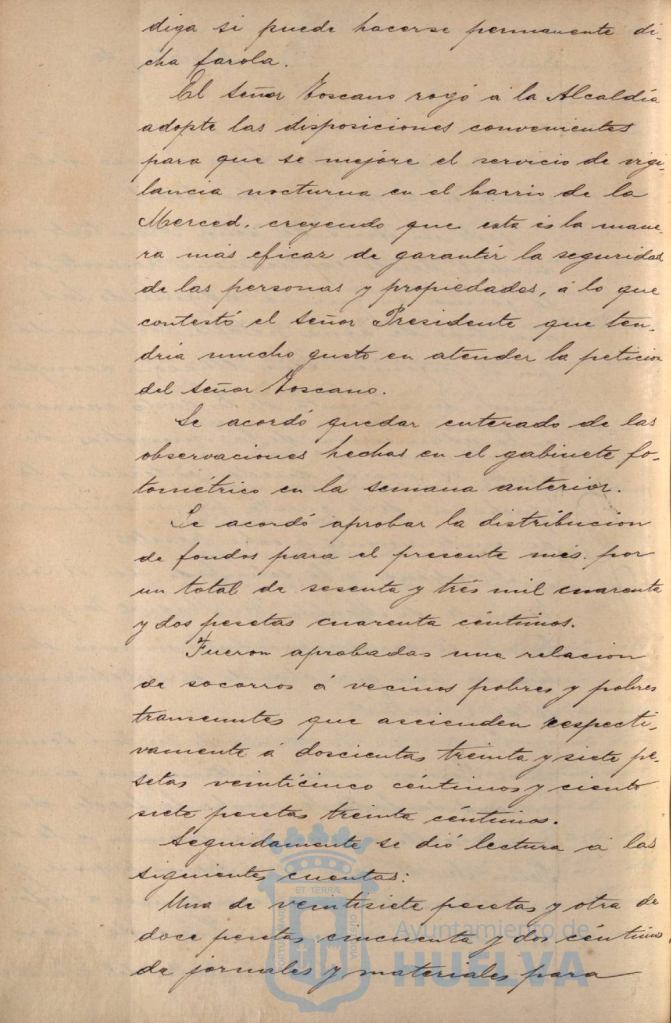 diga si puede hacerse permanente di-
cha farola.
El señor Toscano rogó a la Alcaldía
adopte las disposiciones convenientes
para que se mejore el servicio de vigi-
lancia nocturna en el barrio de la
Merced, creyendo que esta és la mane-
ra más eficaz de garantir la seguridad
de las personas y propiedades, á lo que
contestó el señor Presidente que ten-
dria mucho gusto en atender la peticion
del señor Toscano.
Se acordó quedar enterado de las
observaciones hechas en el gabinete fo-
tométrico en la semana anterior.
Se acordó aprobar la distribucion
de fondos para el presente mes. por
un total de sesenta y trés mil cuarenta
y dos pesetas cuarenta céntimos.
Fueron aprobadas una relacion
de socorros á vecinos pobres y pobres
transeuntes que ascienden respecti-
vamente á doscientas treinta y siete pe-
setas veinticinco céntimos y ciento
siete pesetas treinta céntimos.
Seguidamente se dió lectura a las
siguientes cuentas:
Una de veintisiete pesetas y otra de
doce pesetas cincuenta y dos céntimos
de jornales y materiales para
Ayuntamiento de
HUELVA